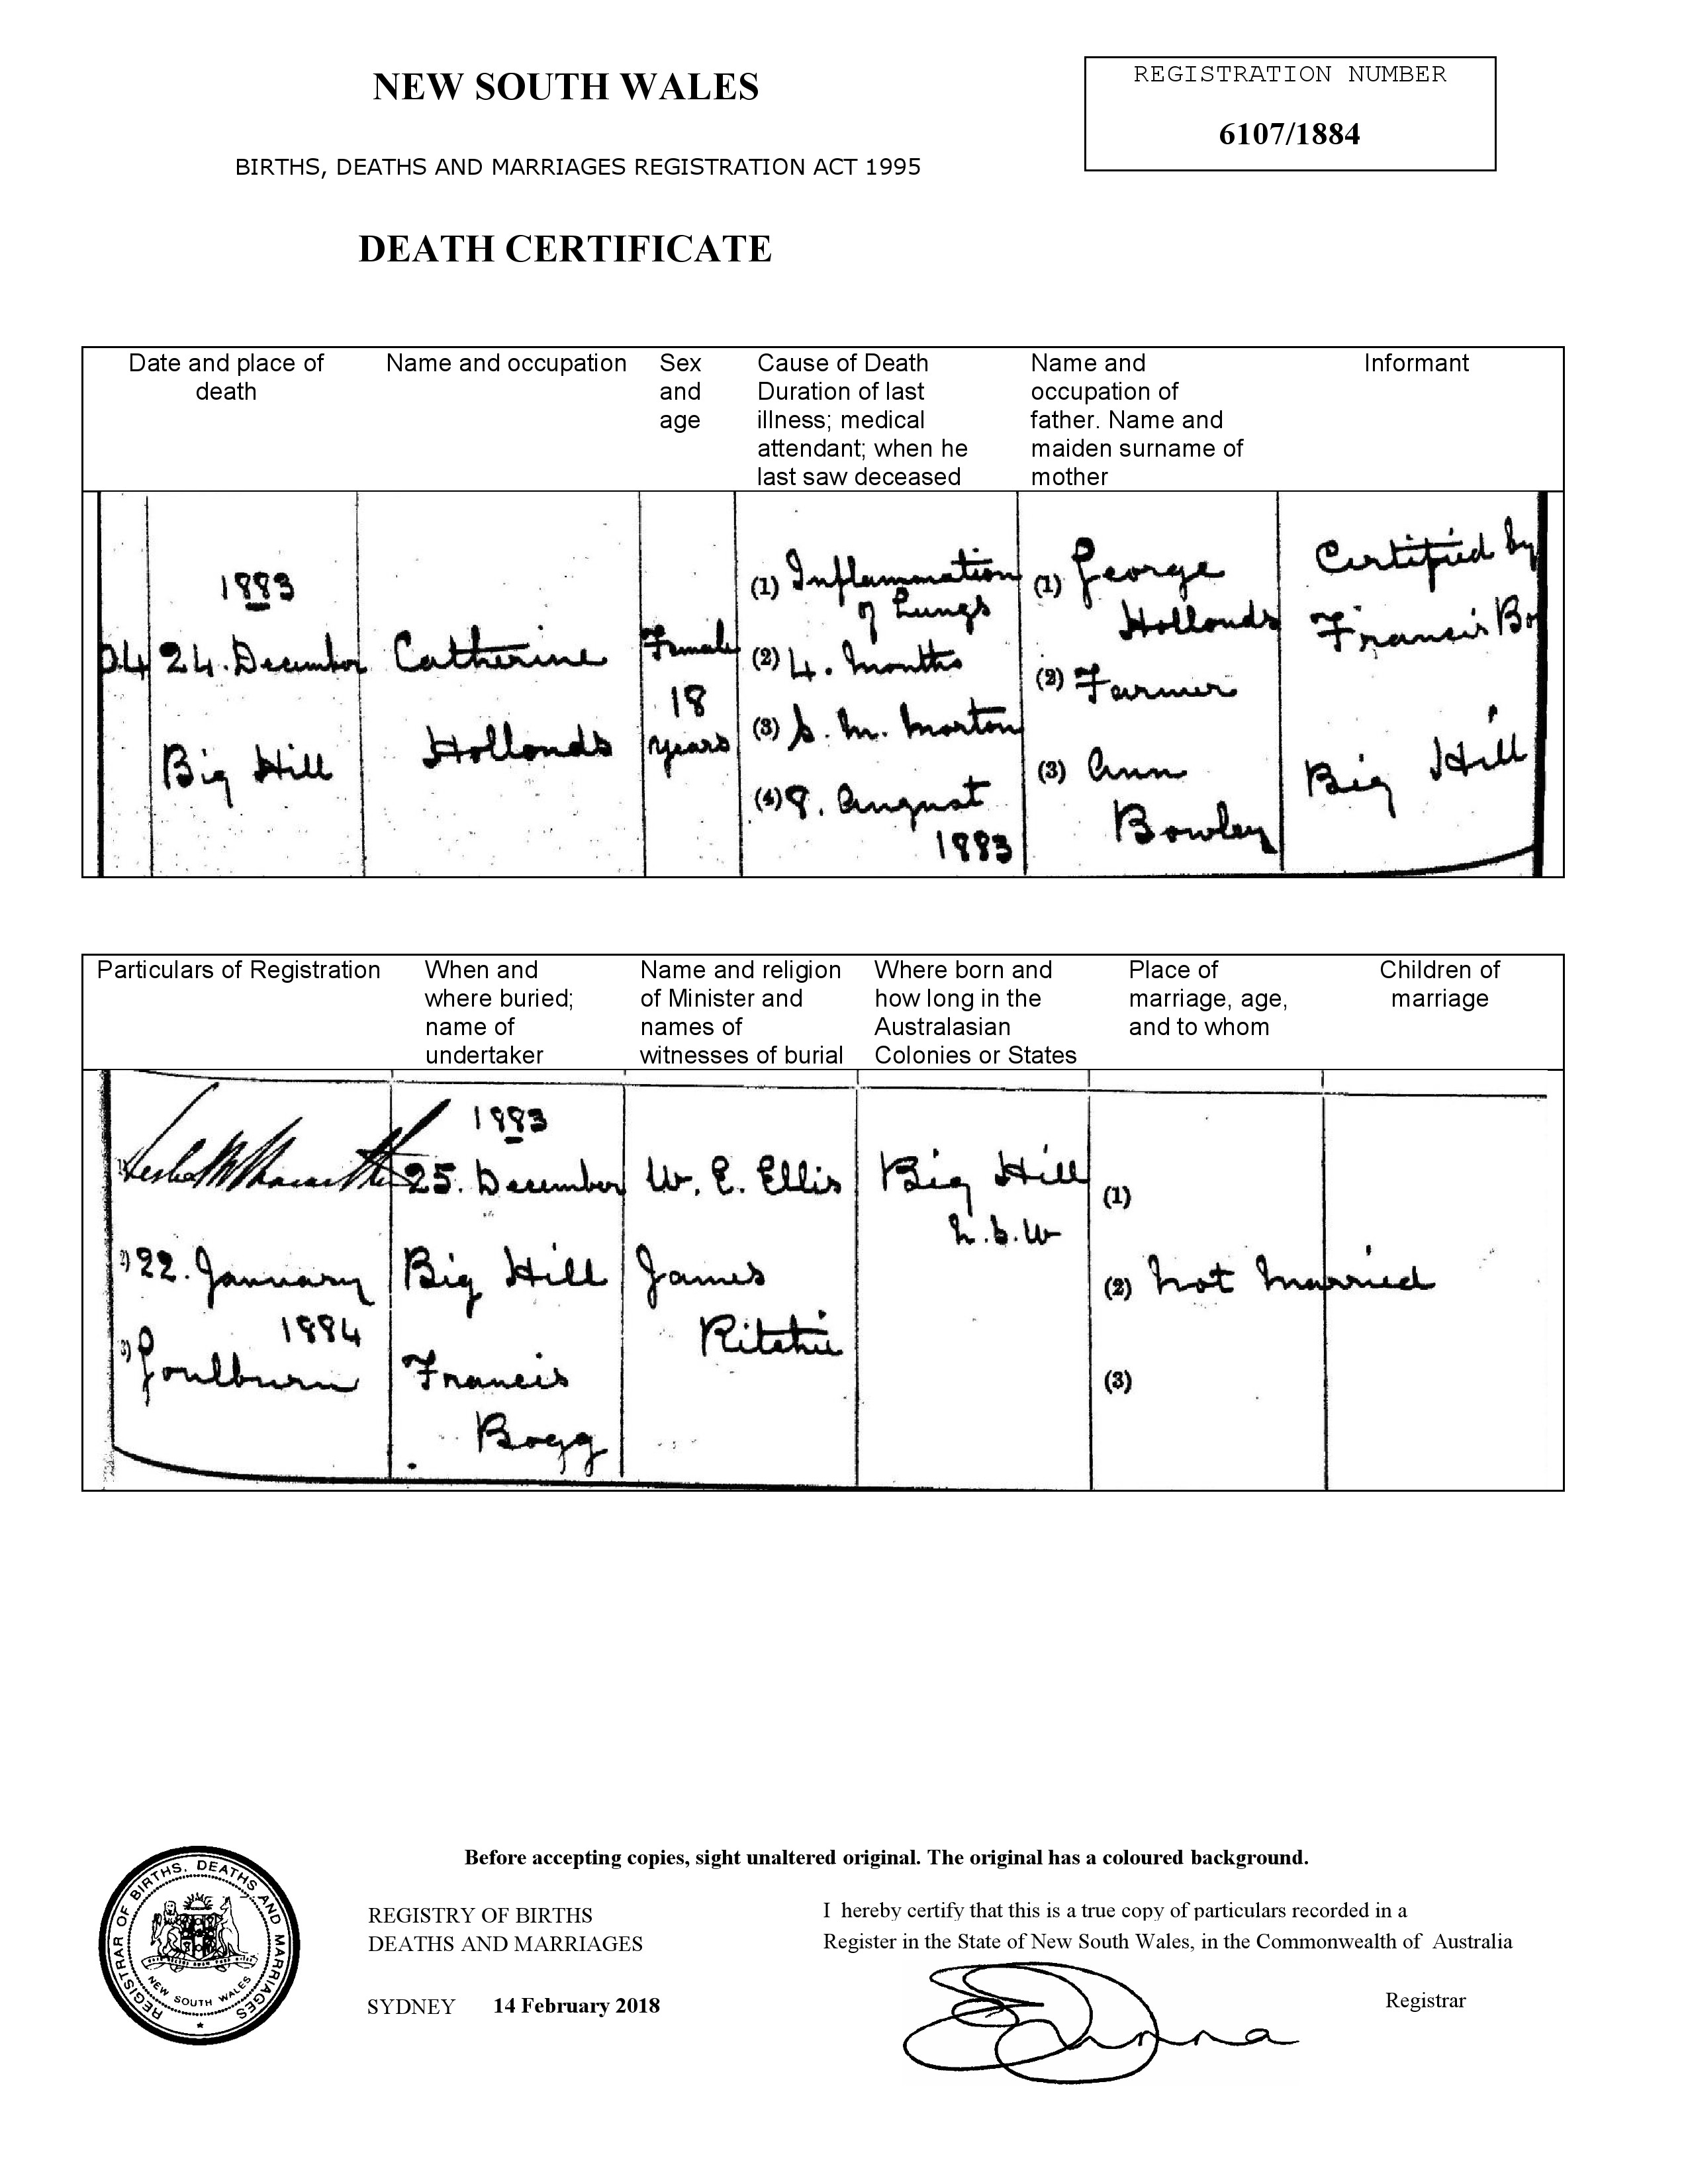 NEW SOUTH WALES
REGISTRATION NUMBER
6107/1884
BIRTHS, DEATHS AND MARRIAGES REGISTRATION ACT 1995
DEATH CERTIFICATE
Date and place of
death
Name and occupation
Sex
and
age
Cause of Death
Duration of last
illness; medical
attendant; when he
last saw deceased
Name and
occupation of
father. Name and
maiden surname of
mother
Informant
04
1883
24. December
Big Hill
Catherine
Hollands
Female
18
years
(1) Inflammation
of Lungs
(2) 4. Months
(3) S. M. Morton
(4) 8. August
1883
(1) George
Hollands
(2) Farmer
(3) Ann
Bowley
Certified by
Francis Bo
Big Hill
Particulars of Registration
When and
where buried;
name of
undertaker
Name and religion
of Minister and
names of
witnesses of burial
Where born and
how long in the
Australasian
Colonies or States
Place of
marriage, age,
and to whom
Children of
marriage
2) 22. January
1884
3) Goulburn
1883
25. December
Big Hill
Francis
Bogg
W. E. Ellis
James
Ritchie
Big Hill
N.S.W
(1)
(2) Not Married
(3)
Before accepting copies, sight unaltered original. The original has a coloured background.
REGISTRAR OF BIRTHS, DEATHS AND MARRIAGES
NEW SOUTH WALES
REGISTRY OF BIRTHS
DEATHS AND MARRIAGES
SYDNEY 14 February 2018
I hereby certify that this is a true copy of particulars recorded in a
Register in the State of New South Wales, in the Commonwealth of Australia
Registrar